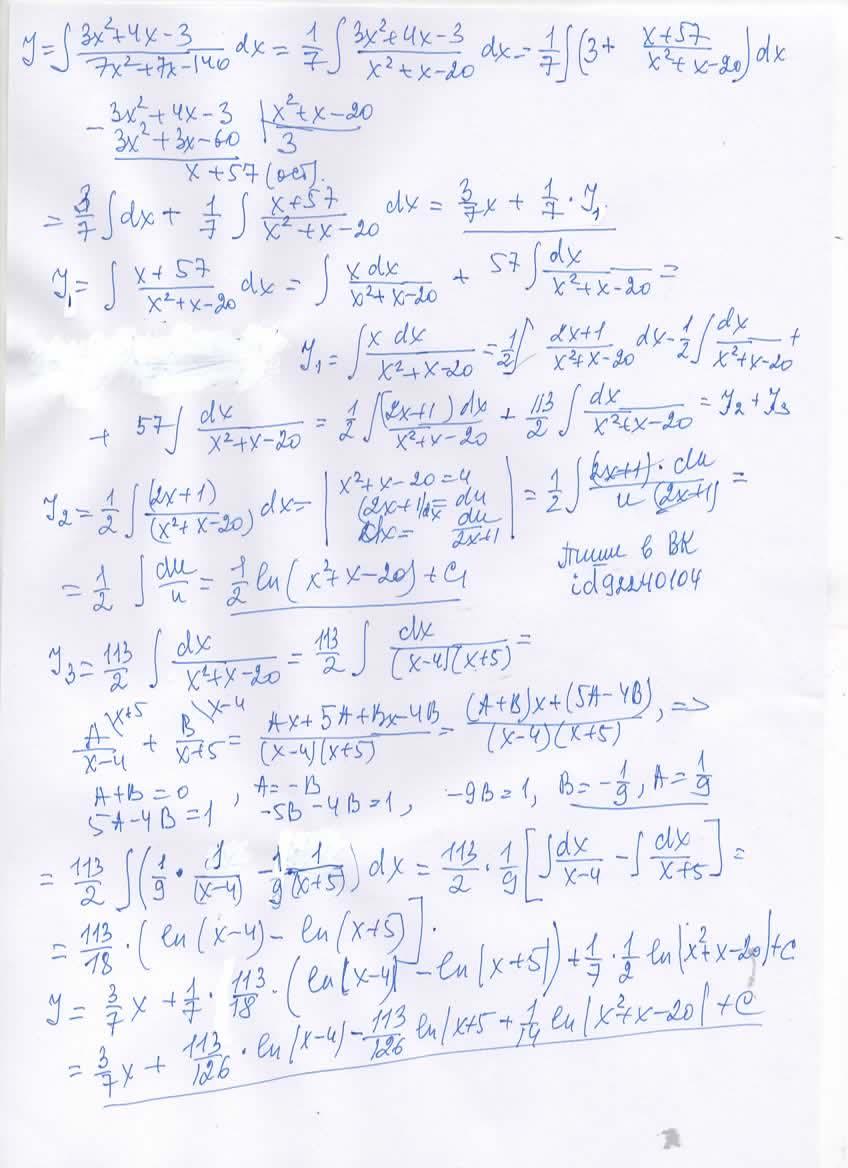 J = ∫ (3x²+4x-3)/(7x²+7x-140) dx = 1/7 ∫ (3x²+4x-3)/(x²+x-20) dx = 1/7 ∫ (3 + (x+57)/(x²+x-20)) dx
- 3x²+4x-3 | x²+x-20
3x²+3x-60 | 3
x+57 (ост).
= 3/7 ∫ dx + 1/7 ∫ (x+57)/(x²+x-20) dx = 3/7 x + 1/7 · J₁
J₁ = ∫ (x+57)/(x²+x-20) dx = ∫ x dx/(x²+x-20) + 57 ∫ dx/(x²+x-20) =
J₁ = ∫ x dx/(x²+x-20) = 1/2 ∫ (2x+1)/(x²+x-20) dx - 1/2 ∫ dx/(x²+x-20) +
+ 57 ∫ dx/(x²+x-20) = 1/2 ∫ (2x+1) dx/(x²+x-20) + 113/2 ∫ dx/(x²+x-20) = J₂ + J₃
J₂ = 1/2 ∫ (2x+1)/(x²+x-20) dx = | x²+x-20 = u
(2x+1)dx = du
dx = du/(2x+1) | = 1/2 ∫ (2x+1)·du/(u(2x+1)) =
= 1/2 ∫ du/u = 1/2 ln(x²+x-20) + C₁
пиши в ВК
id92240104
J₃ = 113/2 ∫ dx/(x²+x-20) = 113/2 ∫ dx/((x-4)(x+5)) =
A\x+5/(x-4) + B\x-4/(x+5) = (Ax+5A+Bx-4B)/((x-4)(x+5)) = ((A+B)x+(5A-4B))/((x-4)(x+5)), =>
A+B=0 , A=-B
5A-4B=1 -5B-4B=1, -9B=1, B=-1/9, A=1/9
= 113/2 ∫ (1/9 · 1/(x-4) - 1/9 1/(x+5)) dx = 113/2 · 1/9 [∫ dx/(x-4) - ∫ dx/(x+5)] =
= 113/18 · (ln(x-4) - ln(x+5)].
J = 3/7 x + 1/7 · 113/18 · (ln|x-4| - ln|x+5|) + 1/7 · 1/2 ln|x²+x-20| + C
= 3/7 x + 113/126 · ln|x-4| - 113/126 ln|x+5 + 1/14 ln|x²+x-20| + C